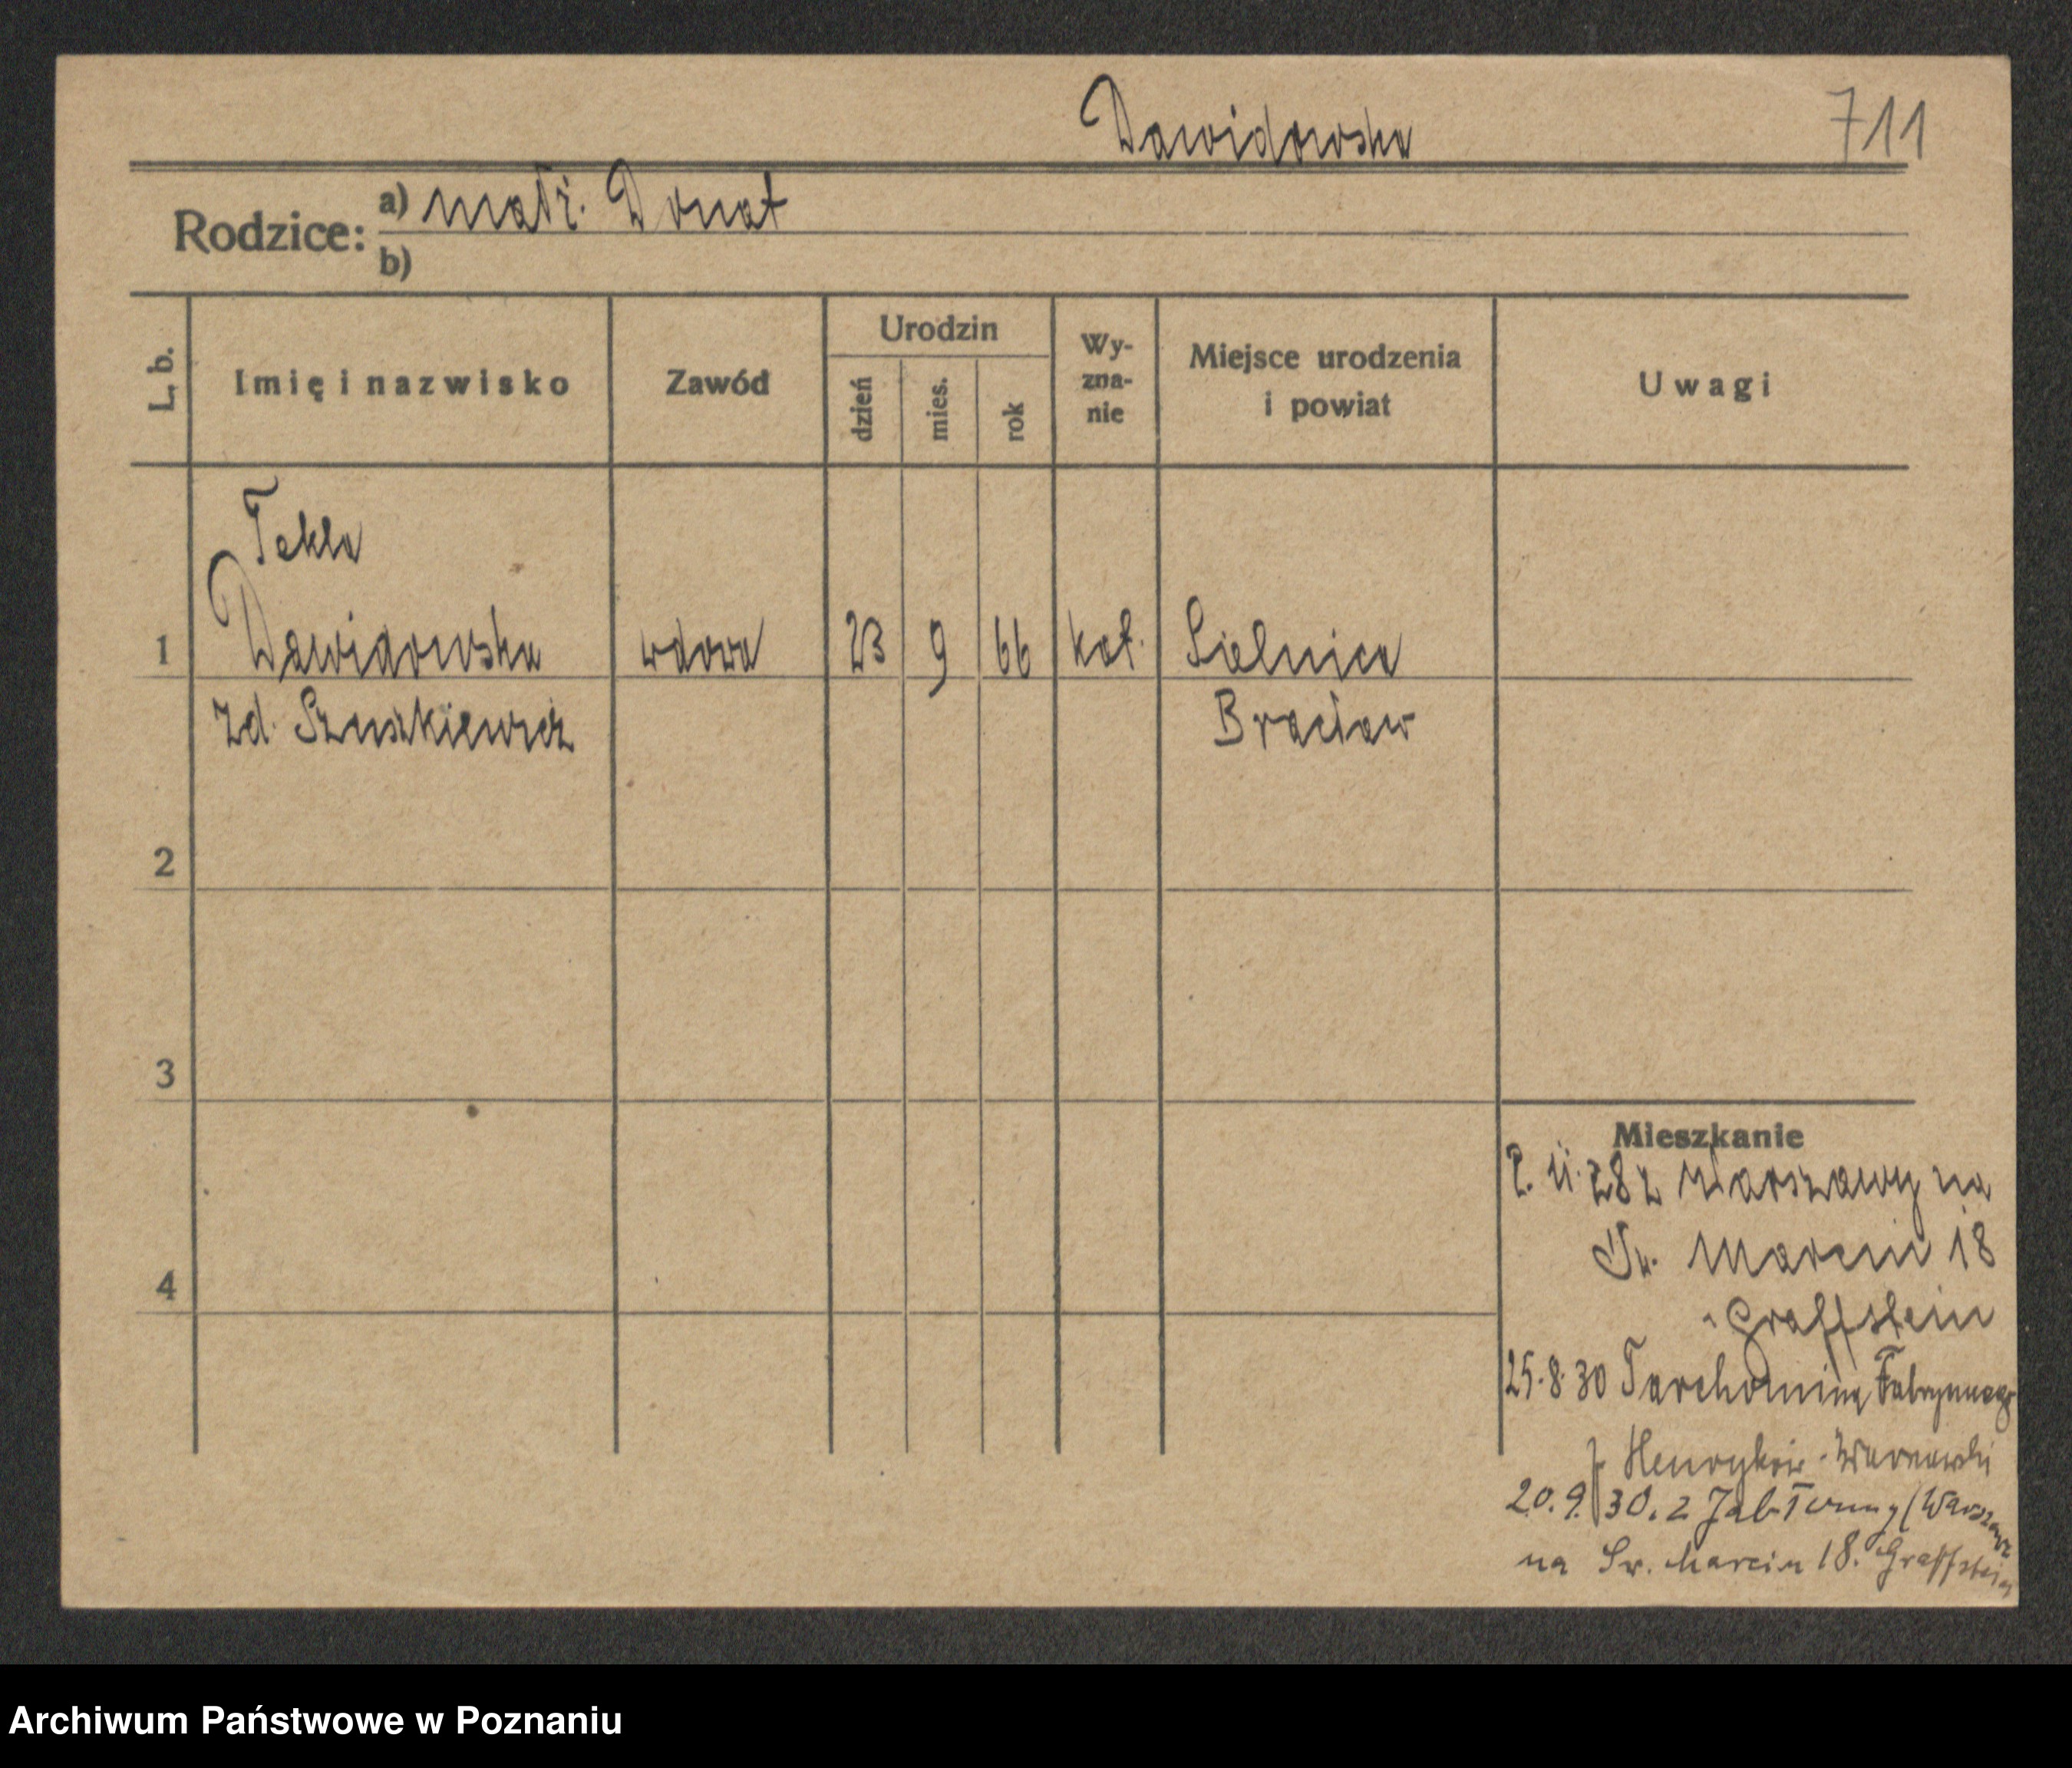 Dawidowska 711
Rodzice: a) małż. Donat
b)
L. b. Imię i nazwisko Zawód Urodzin dzień mies. rok Wy-zna-nie Miejsce urodzenia i powiat Uwagi
Tekla
1 Dawidowska wdowa 23 9 66 kat. Sielnica
zd. Szuszkiewicz Bracław
2
3
4
Mieszkanie
2. 11. 28 z Warszawy na
Św. Marcin 18
Graffstein
25.8.30 Tarchomina Fabrycznego
p Henryków - Warnawski
20.9.30. z Jabłonny (Warszawa
na Św. Marcin 18. Graffstein
Archiwum Państwowe w Poznaniu